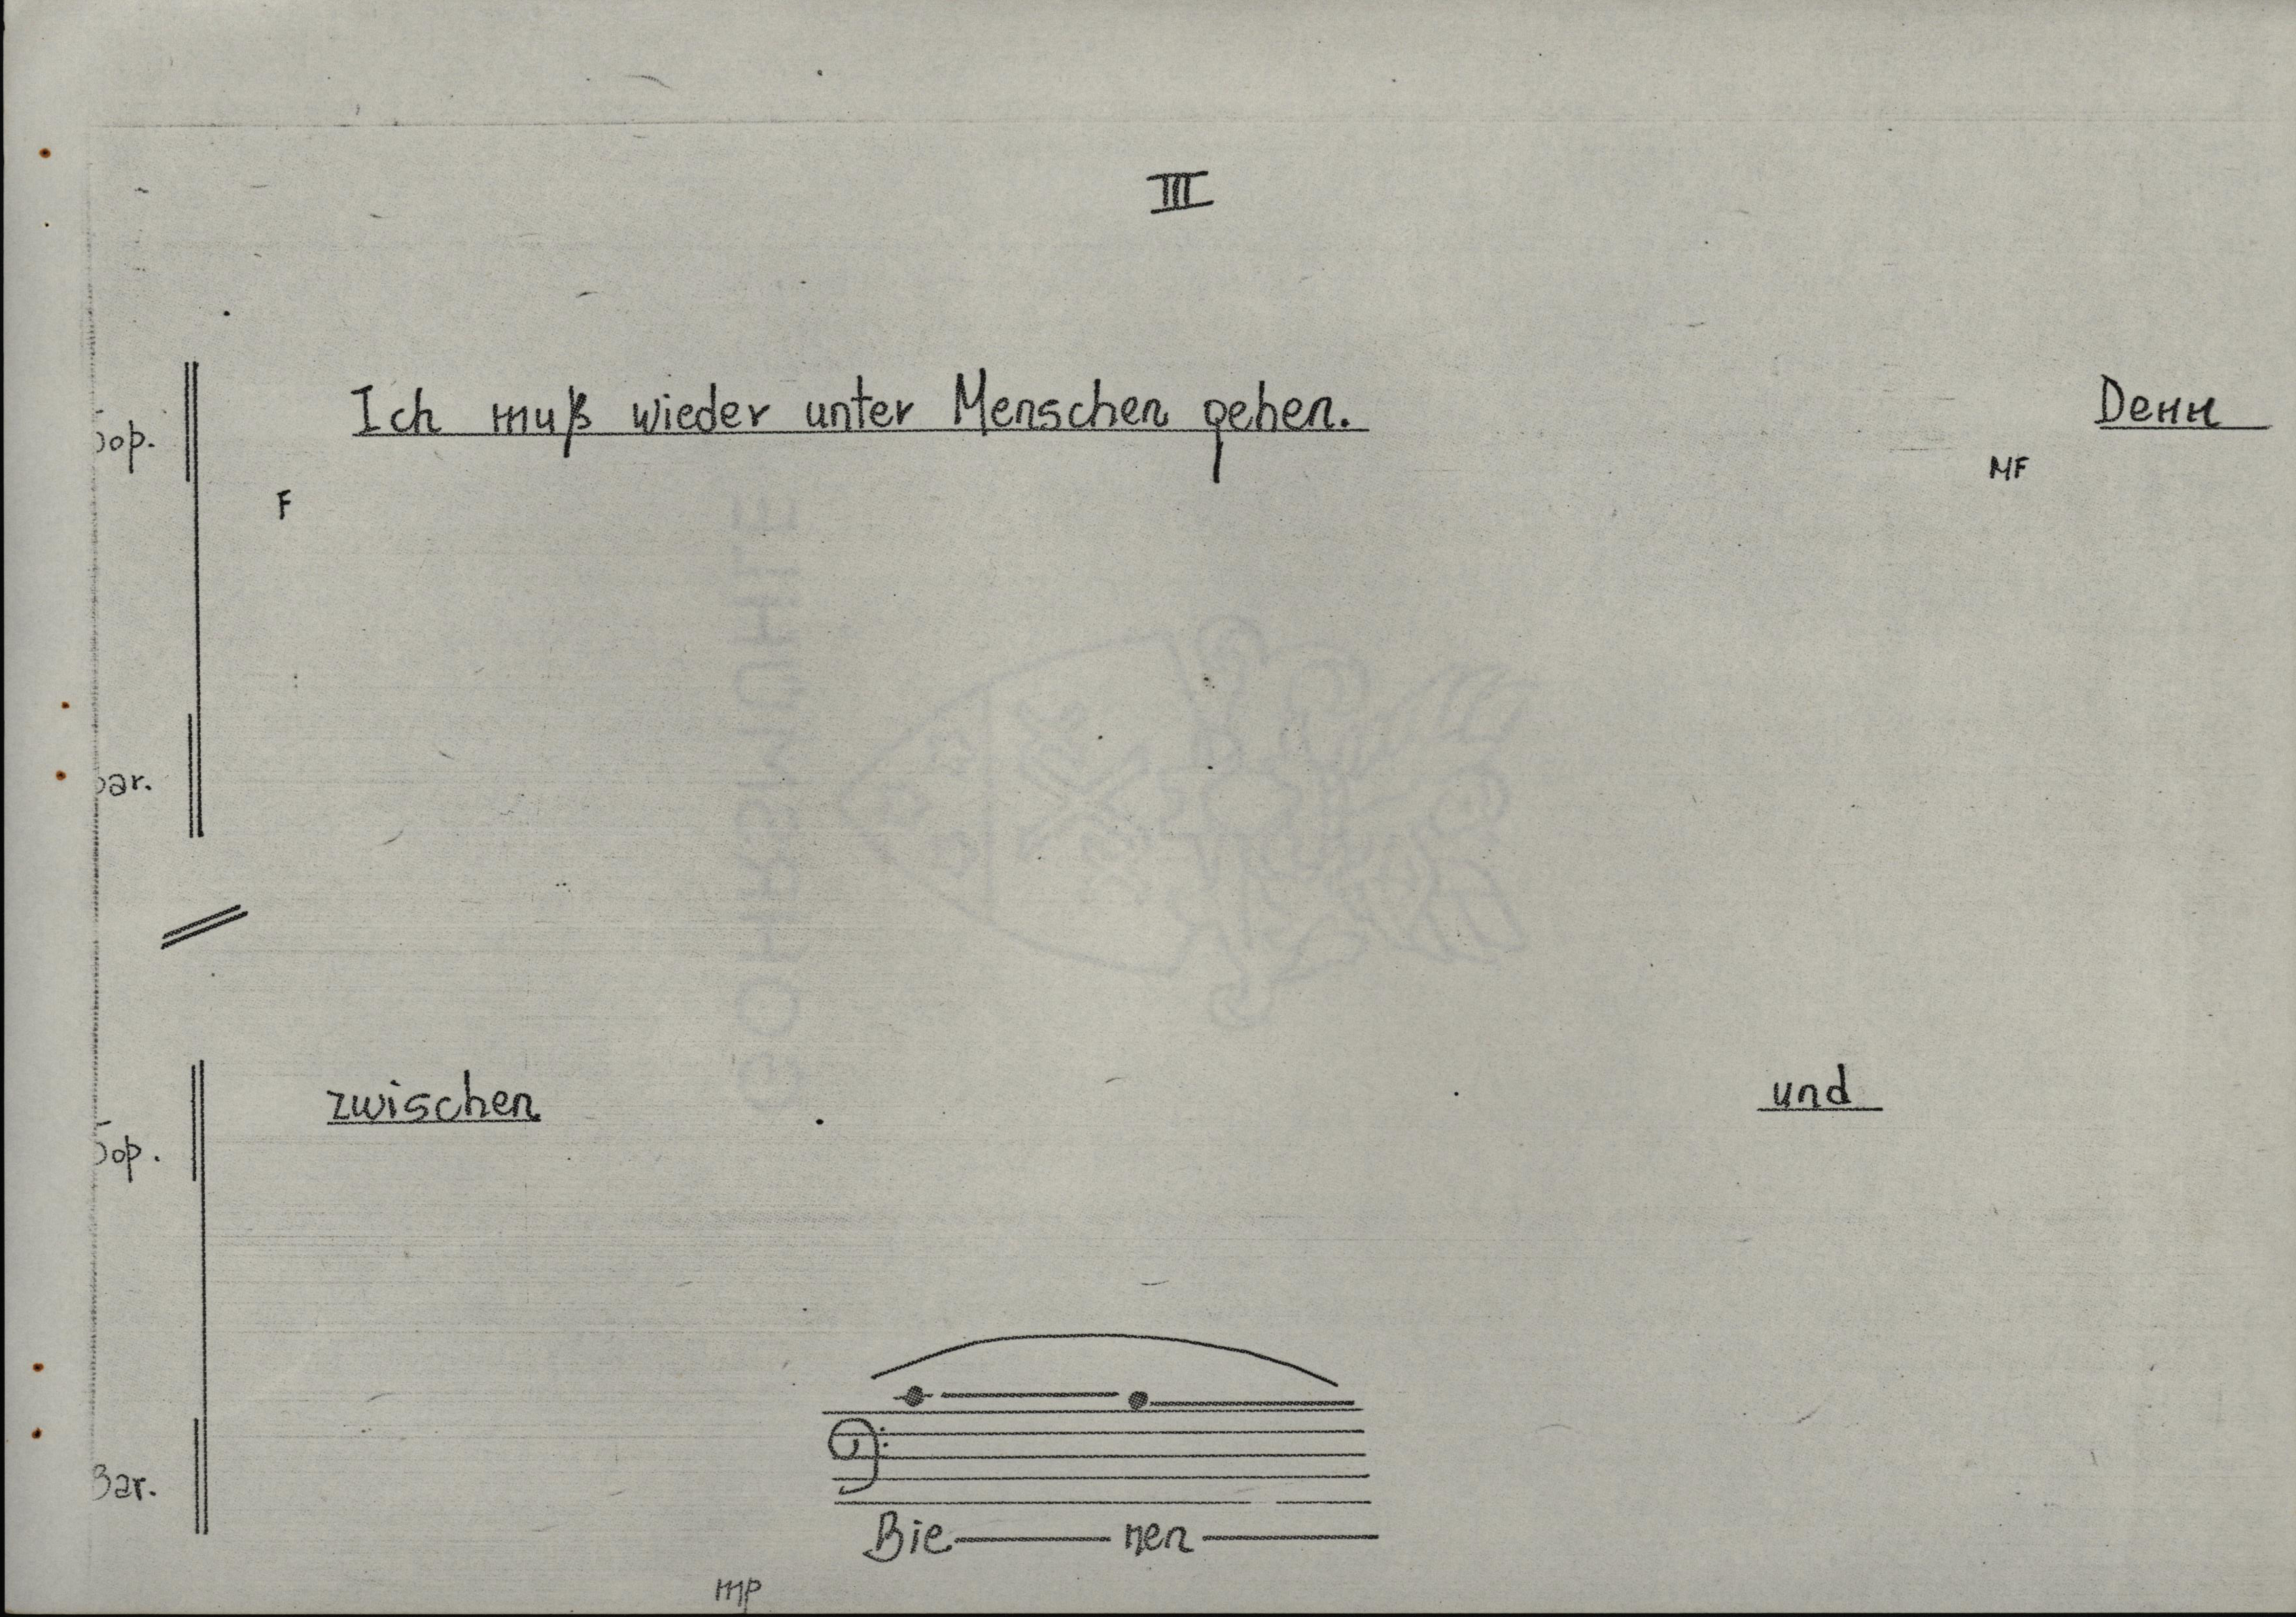 III
Sop. Ich muß wieder unter Menschen gehen. Denn
F MF
Bar.
Sop. zwischen und
Bar.
Bie nen
mp
GOHRISMÜHLE